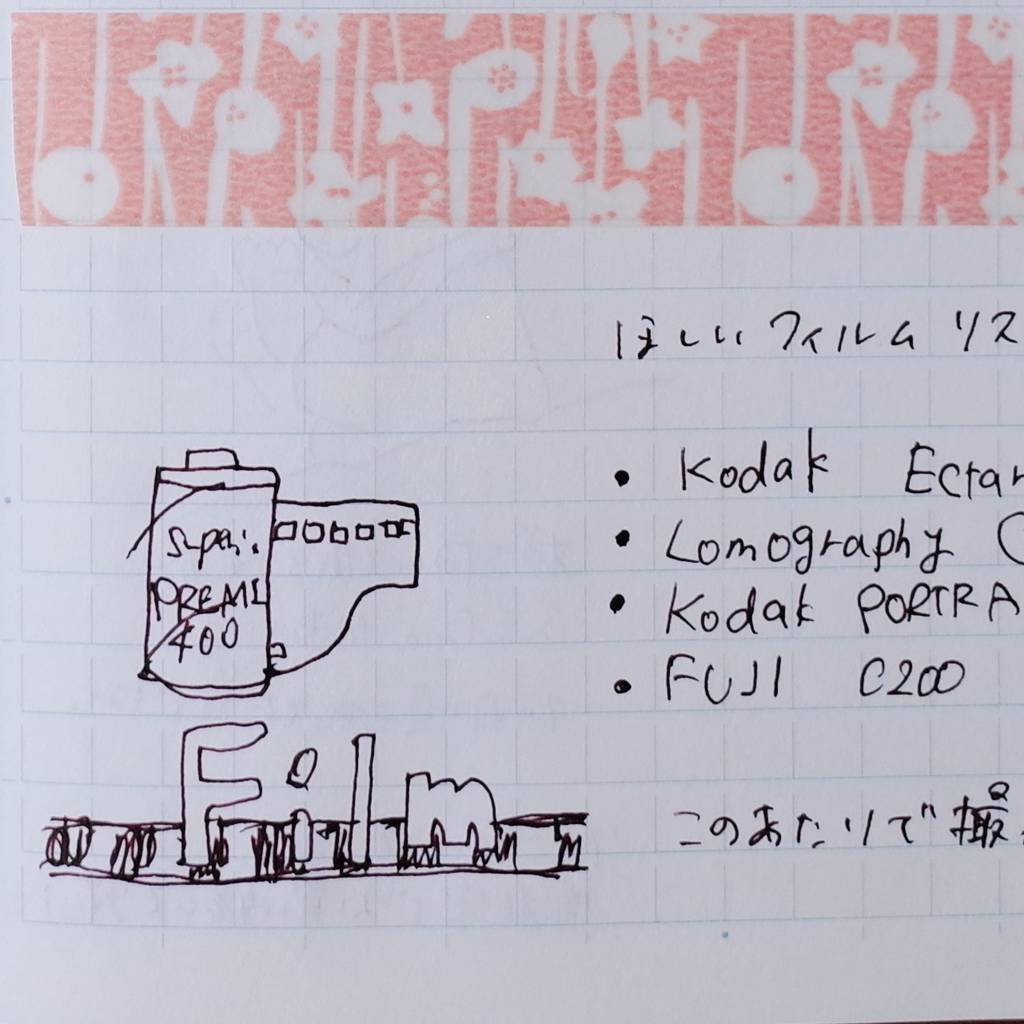 ほしいフィルムリス
• Kodak Ectar
• Lomography C
• Kodak PORTRA
• FUJI C200
Super.
PREMI
400
Film
このあたりで撮